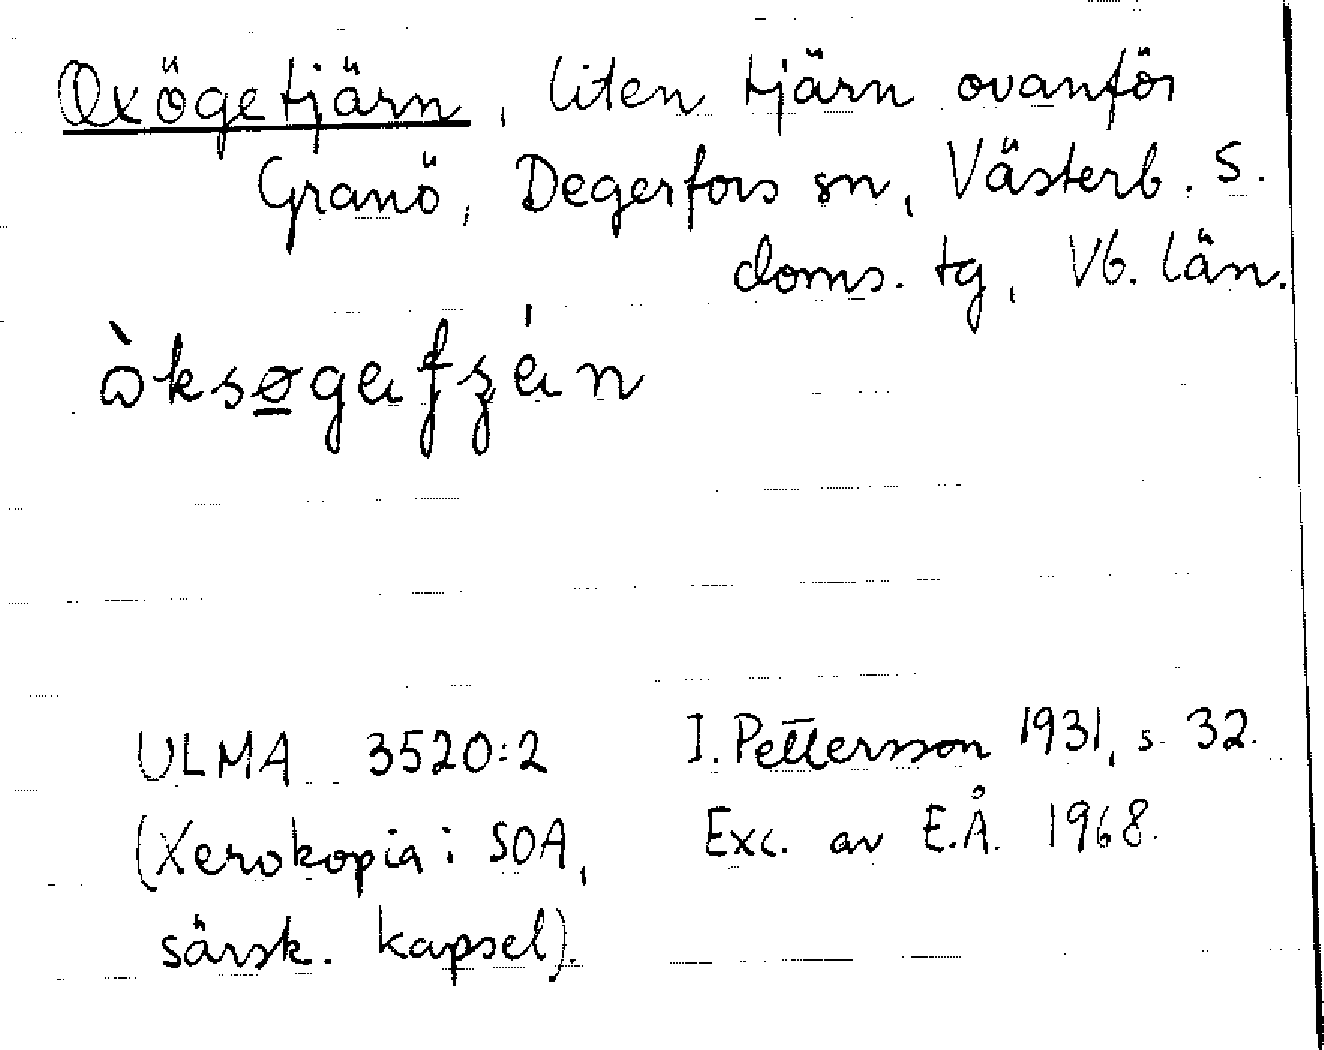 Oxögetjärn, liten tjärn ovanför
Granö, Degerfors sn, Västerb. S.
doms. tg, Vb. län.
ULMA 3520:2 I. Pettersson 1931, s. 32.
(Xerokopia i SOA, Exc. av E.Å. 1968.
särsk. kapsel).